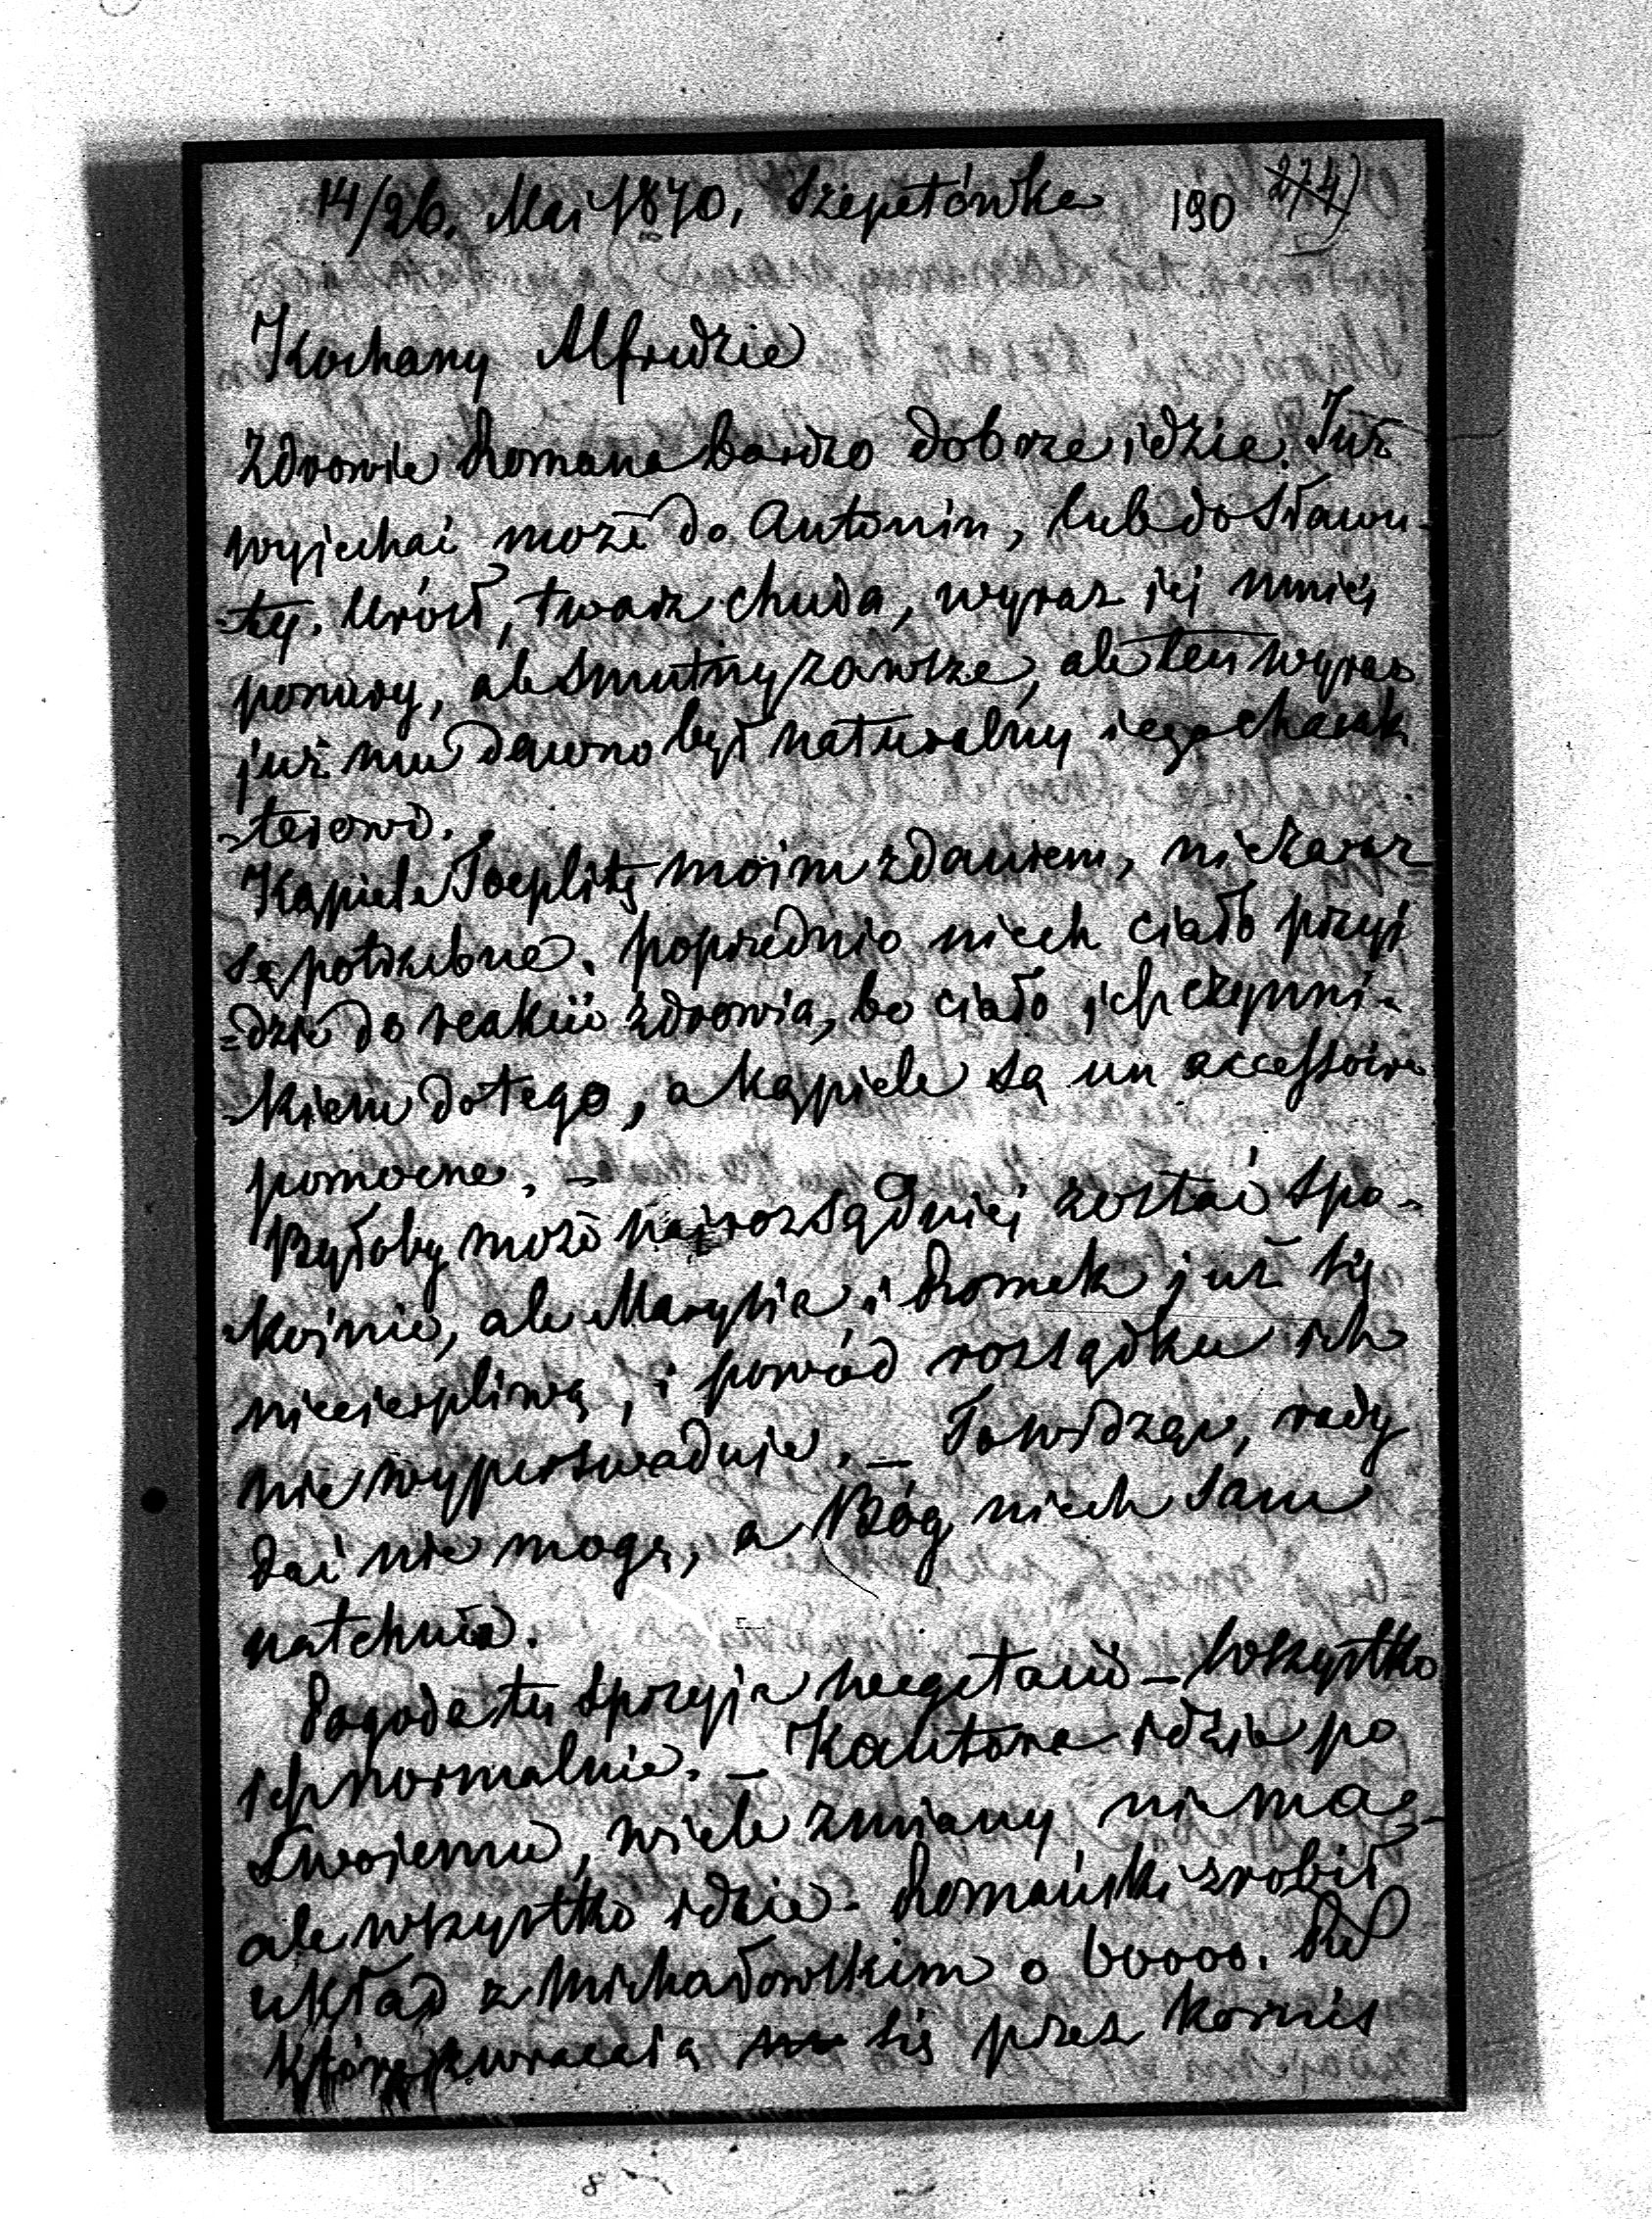 14/26. Mai 1870, Szepetówka 190 274)
Kochany Alfredzie
Zdrowie Romana bardzo dobrze idzie. Już
wyjechać może do Antonin, lub do Sławu-
-ty. Urósł, twarz chuda, wyraz jej mniej
ponury, ale smutny zawsze, ale ten wyraz
już mu dawno był naturalny jego charak
-terowi.
Kąpiele Toeplitz moim zdaniem, nie zaraz
są potrzebne. poprzednio niech ciało przyj
=dzie do reakcii zdrowia, bo ciało jest czynni-
-kiem do tego, a kąpiele są un accessoire
pomocne. -
Byłoby może najrozsądniej zostać spo-
-kojnie, ale Marysia i Romek już się
niecierpliwą, i powód rozsądku ich
nie wyperswaduje. _ To widząc, rady
dać nie mogę, a Bóg niech sam
natchnie.
Pogoda tu sprzyja wegetacii _ Wszystko
jest normalnie. _ Kantora idzie po
swojemu, wiele zmiany nie ma _
ale wszystko idzie. Romański zrobił
układ z Michałowskim o 60000. Rs
które zwracają się przez komis